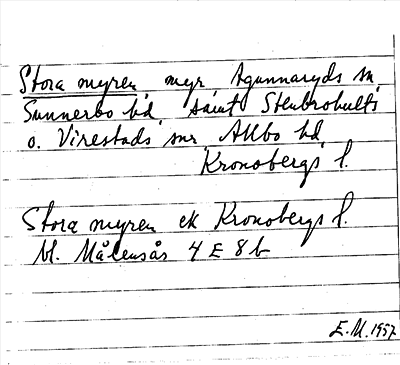 Stora myren myr, Agunnaryds sn,
Sunnerbo hd, samt Stenbrohults
o. Virestads snr Allbo hd
Kronobergs l.
Stora myren ek Kronobergs l.
bl. Målensås 4 E 8 b
E.M. 1957